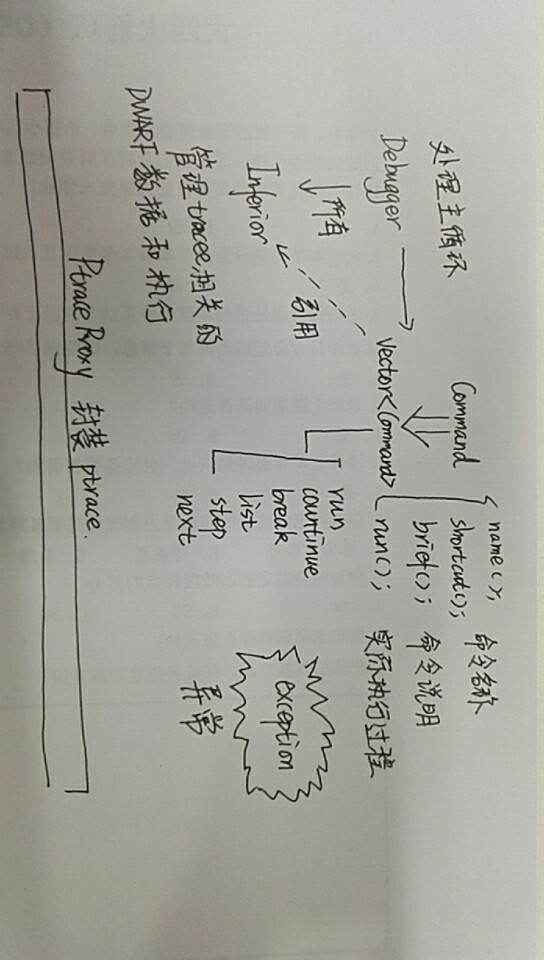 处理主循环
Debugger
所有
Inferior
管理tracee相关的
DWARF数据和执行
Command
vector<Command>
引用
name();
shortcut();
命令名称
brief(); 命令说明
run(); 实际执行过程
run
countinue
break
list
step
next
exception
异常
PtraceProxy 封装ptrace.